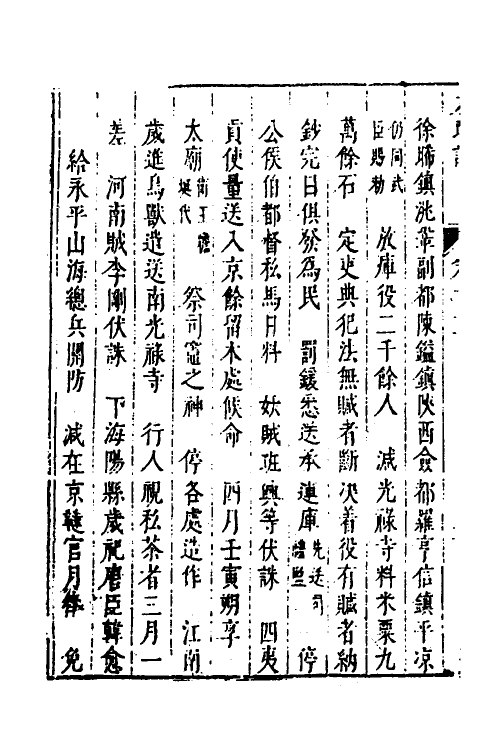 徐晞鎮洮副都陳鎰鎮陝西僉都羅亨信鎮平凉
仍同武臣賜勑　放庫役二千餘人　減光祿寺料米粟九
萬餘石　定吏典犯法無贓者斷决着役有贓者納
鈔完日俱發爲民　罰鍰悉送承運庫先送司禮監　停
公侯伯都督私馬日料　妖賊班興等伏誅　四夷
貢使量送入京餘留本處候命　四月壬寅朔享
太廟　祭司竈之神　停各處造作　江南
歲進鳥獸造送南光祿寺　行人視私茶者三月一
差　河南賊李剛伏誅　下海陽縣歲祀唐臣韓愈
給永平山海總兵關防　減在京韃官月俸　免